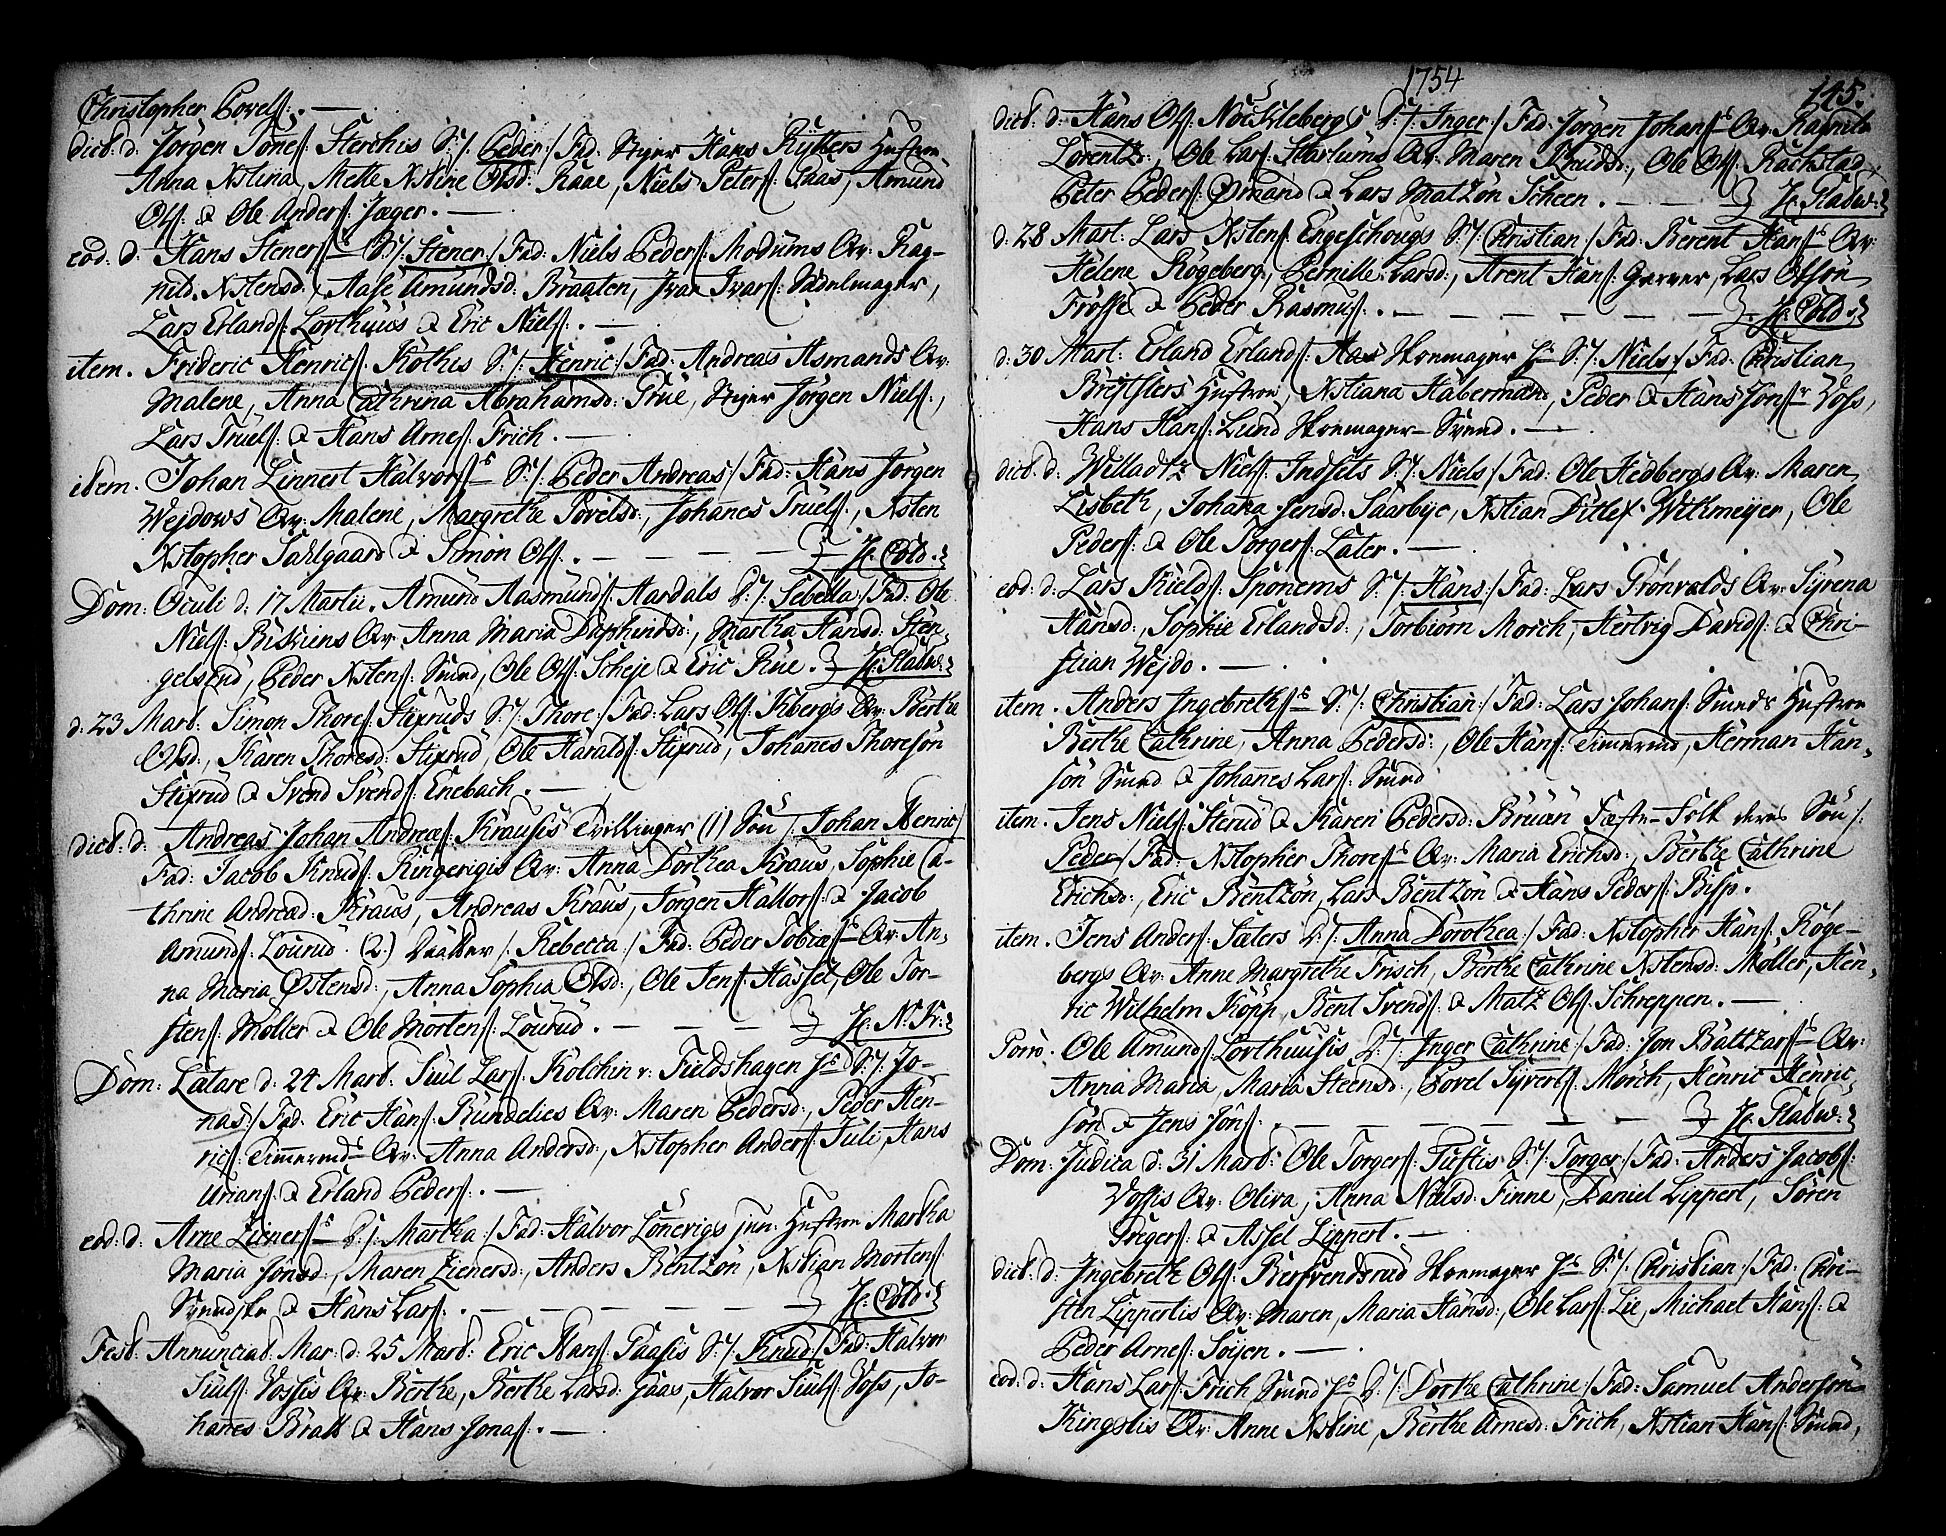 Christopher Povels:. —
dict. d. Jörgen Tönes: Sterchis S:/: Peder :/ Fad: Hans Rytters Hustrue
Anna Xstina, Mette Xstine Olsd: Raae, Niels Peters: Gaas, Amund
Ols: & Ole Anders: Jæger. —
eod: d: Hans Steners: S:/: Stener :/ Fad: Niels Peders: Modums Qv: Rag-
nild Xstensd:, Aase Amundsd: Braaten, Ivar Ivars: Sadelmager,
Lars Erlands: Lorthuus & Eric Niels:. —
item. Frideric Henrics: Köthes S:/: Henric :/ Fad: Andreas Asmands Qv:
Malene, Anna Cathrina Abrahamsd: True, Jörgen Niels:,
Lars Truels: & Hans Arnes: Frich. —
item. Johan Linnert Halvors: S:/: Peder Andreas :/ Fad: Hans Jörgen
Wejdows Qv: Malene, Margrethe Povelsd:, Johanes Truels:, Xsten
Xstopher Sahlgaard & Simon Ols:. — — — Hr: Cold:
Dom: Oculi d: 17 Martii. Amund Aasmunds: Aardals D:/: Sebella :/ Fad: Ole
Niels: Biskiens Qv: Anna Maria Daphinsd:, Martha Hansd: Sten-
gelsrud, Peder Xstens: Smed, Ole Ols: Scheje & Eric Rue. — Hr: Gladw:
d: 23 Mart: Simon Thores: Stixruds S:/: Thore :/ Fad: Lars Ols: Kibergs Qv: Berthe
Olsd:, Karen Thoresd: Stixrud, Ole Haralds: Stixrud, Johannes Thoresön
Stixrud & Svend Svends: Enebach. —
dict. d. Andreas Johan Andreæs: Krausis Tvillinger (1) Sön /: Johan Henric :/
Fad: Jacob Knuds: Ringerigis Qv: Anna Dorthea Kraus, Sophie Ca-
thrine Andread: Kraus, Andreas Kraus, Jörgen Hallors: & Jacob
Amunds: Lourud. (2.) Daatter /: Rebecca :/ Fad: Peder Tobiæs: Qv: An-
na Maria Østensd:, Anna Sophia Olsd:, Ole Jens: Hassel, Ole Tor-
stens: Möller & Ole Mortens: Lourud. — — — Hr: N: Kr:
Dom: Lætare d: 24 Mart: Juul Lars: Kolchin v: Fieldshagen S:/: Jo-
nas :/ Fad: Eric Hans: Rundelies Qv: Maren Pedersd:, Peder Hen-
rics: Timmermd: Qv: Anna Andersd:, Xstopher Anders: Juli, Hans
Urians: & Erland Peders:. —
eod: d: Arne Zieners: D:/: Martha :/ Fad: Halvor Lönevigs jun: Hustrue Martha
Maria Jönsd:, Maren Zienersd:, Anders Bentzön, Xstian Mortens:
Svendske & Hans Lars:. — — — — — Hr: Cold:
Fest: Annunciat: Mar: d: 25 Mart: Eric Hans: Paasis S:/: Knud :/ Fad: Halvor
Juuls: Vossis Qv: Berthe, Berthe Larsd: Gaas, Halvor Juuls: Voss, Jo-
hanes Bratt & Hans Jonas:. —
1754
145.
dict. d: Hans Ols: Nöchlebergs D:/: Inger :/ Fad: Jörgen Johans: Qv: Ragnild
Lorentzd:, Ole Lars: Skarlums Qv: Maren Knudsd:, Ole Ols: Rachstad,
Peter Peders: Ormand & Lars Matzön Scheen. — — Hr: Gladw:
d: 28 Mart: Lars Xstens: Engeschougs S:/: Christian :/ Fad: Berent Hans: Qv:
Helene Rogeberg, Pernille Larsd:, Arent Hans: Garver, Lars Olssön
Frössø & Peder Rasmus:. — — — — — — Hr: Cold:
d: 30 Mart: Erland Erlands: Aas Skoemager S:/: Niels :/ Fad: Christian
Hustrue, Xstiana Habermand, Peder & Hans Jöns: Voss,
Hans Hans: Lund Skoemager-Svend. —
dict. d: Willadtz Niels: Indsets S:/: Niels :/ Fad: Ole Hedbergs Qv: Maren
Lisbeth, Johana Jensd: Saarbye, Xstian Ditlef Withmeyer, Ole
Peders: & Ole Torgers: Later. —
eod: d: Lars Kields: Sponems S:/: Hans :/ Fad: Lars Grönvolds Qv: Syrena
Hansd:, Sophie Erlandsd:, Torbiörn Morch, Hertvig Davids: & Chri-
stian Wejdo. —
item. Anders Ingebreths: S:/: Christian :/ Fad: Lars Johans: Smeds Hustrue
Berthe Cathrine, Anna Pedersd:, Ole Hans: Timmermd, Herman Han-
sön Smed & Johanes Lars: Smed
item. Jens Niels: Sterud & Karen Pedersd: Bruun Fæste-Folk deres Sön /:
Peder :/ Fad: Xstopher Thores: Qv: Maria Erichsd:, Berthe Cathrine
Erichsd:, Eric Bentzön, Lars Bentzön & Hans Peders: Bisp.
item. Jens Anders: Sæters D:/: Anna Dorothea :/ Fad: Xstopher Hans: Röge-
bergs Qv: Anne Margrethe Frisch, Berthe Cathrine Xstensd: Möller, Hen-
ric Wilhelm Köpp, Bent Svends: & Matz Ols: Schreppen. —
Porro. Ole Amunds: Lorthuusis D:/: Inger Cathrine :/ Fad: Jon Baltzars: Qv:
Anna Maria, Maria Steensd:, Povel Syverts: Morch, Henric Henric-
sön & Jens Jöns:. — — — — — — Hr: Gladw:
Dom: Judica d: 31 Mart: Ole Torgers: Tuftis S:/: Torger :/ Fad: Anders Jacobs:
Vossis Qv: Oliva, Anna Nielsd: Finne, Daniel Lippert, Sören
Gregers: & Assel Lippert. —
dict: d: Ingebreth Ols: Bersvendsrud Skoemager S:/: Christian :/ Fad: Chri-
sten Lippertis Qv: Maren, Maria Hansd:, Ole Lars: Lie, Michael Hans: &
Peder Arnes: Soyen. —
eod: d: Hans Lars: Frich Smed D:/: Dorthe Cathrine :/ Fad: Samuel Andersön
Kingstis Qv: Anne Xstine, Berthe Arnesd: Frich, Xstian Hans: Smed,